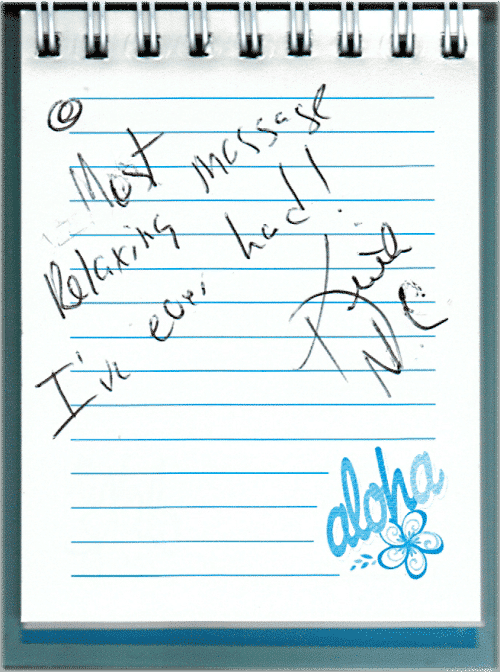 Most
Relaxing massage
I've ever had!
NC
aloha